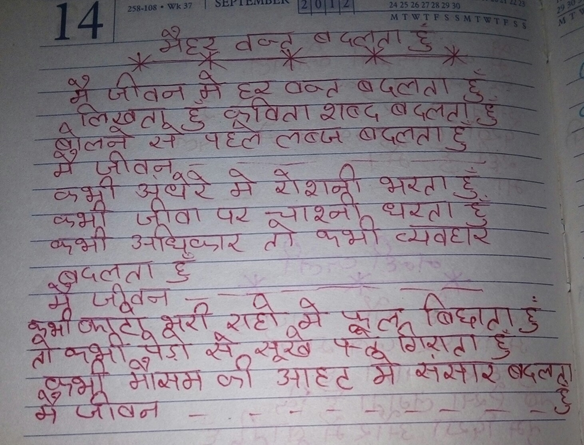 14
258-108 • Wk 37
SEPTEMBER
2012
24 25 26 27 28 29 30
M T W T F S S M T W T F S S
मै हर वक्त बदलता हुं
मै जीवन मे हर वक्त बदलता हुँ
लिखता हुँ कविता शब्द बदलता हुँ
बोलने से पहले लब्ज बदलता हुँ
मै जीवन
कभी अंधेरे मे रोशनी भरता हुँ
कभी जीवा पर चाश्नी धरता हुँ
कभी अधिकार तो कभी व्यवहार
बदलता हुँ
मै जीवन
कभी काटो भरी राहो मे फूल बिछाता हुं
तो कभी पेडो से सूखे फल गिराता हुँ
कभी मौसम की आहट मे संसार बदलता
हुँ
मै जीवन